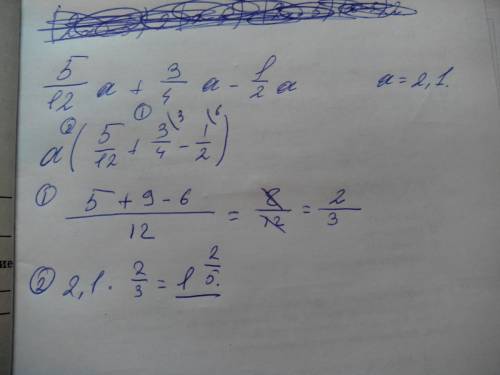 5/12 a + 3/4 a - 1/2 a a = 2,1.
② ①
a ( 5/12 + 3/4 \3 - 1/2 \6 )
① (5 + 9 - 6)/12 = 8/12 = 2/3
② 2,1 · 2/3 = 1 2/5.